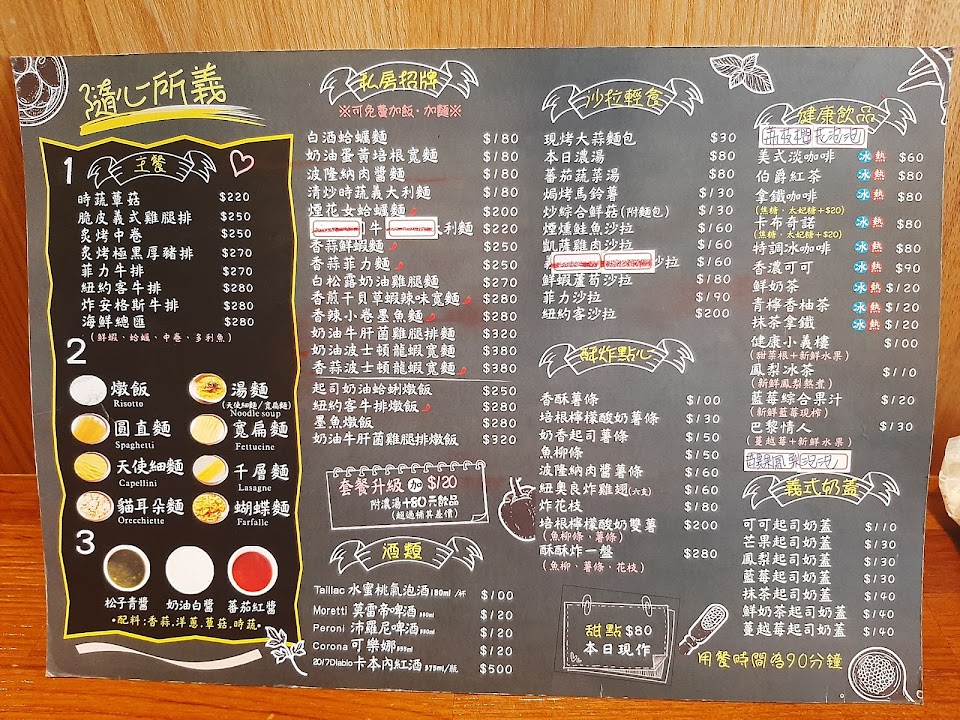 隨心所義
1
主餐
時蔬蕈菇 $220
脆皮義式雞腿排 $250
炙烤中卷 $250
炙烤極黑厚豬排 $270
菲力牛排 $270
紐約客牛排 $280
炸安格斯牛排 $280
海鮮總匯 $280
(鮮蝦、蛤蠣、中卷、多利魚)
2
燉飯 湯麵
Risotto (天使細麵/寬扁麵)
Noodle soup
圓直麵 寬扁麵
Spaghetti Fettucine
天使細麵 千層麵
Capellini Lasagne
貓耳朵麵 蝴蝶麵
Orecchiette Farfalle
3
松子青醬 奶油白醬 蕃茄紅醬
•配料:香蒜.洋蔥.蕈菇.時蔬•
私房招牌
※可免費加飯、加麵※
白酒蛤蠣麵 $180
奶油蛋黃培根寬麵 $180
波隆納肉醬麵 $180
清炒時蔬義大利麵 $180
煙花女蛤蠣麵 $200
牛 大利麵 $220
香蒜鮮蝦麵 $250
香蒜菲力麵 $250
白松露奶油雞腿麵 $250
香煎干貝草蝦辣味寬麵 $280
香辣小卷墨魚麵 $280
奶油牛肝菌雞腿排麵 $320
奶油波士頓龍蝦寬麵 $380
香蒜波士頓龍蝦寬麵 $380
起司奶油蛤蜊燉飯 $250
紐約客牛排燉飯 $280
墨魚燉飯 $280
奶油牛肝菌雞腿排燉飯 $320
套餐升級 加 $120
附濃湯+80元飲品
(超過補其差價)
酒類
Taillac 水蜜桃氣泡酒180ml /杯 $100
Moretti 莫雷帝啤酒330ml $120
Peroni 沛羅尼啤酒330ml $120
Corona 可樂娜355ml $120
20/7Diablo卡本內紅酒 375ml/瓶 $500
沙拉輕食
現烤大蒜麵包 $30
本日濃湯 $80
蕃茄蔬菜湯 $80
焗烤馬鈴薯 $130
炒綜合鮮菇(附麵包) $130
煙燻鮭魚沙拉 $160
凱薩雞肉沙拉 $160
沙拉 $160
鮮蝦蘆筍沙拉 $180
菲力沙拉 $190
紐約客沙拉 $200
酥炸點心
香酥薯條 $100
培根檸檬酸奶薯條 $130
奶香起司薯條 $150
魚柳條 $150
波隆納肉醬薯條 $160
紐奧良炸雞翅(六支) $160
炸花枝 $180
培根檸檬酸奶雙薯 $200
(魚柳條、薯條)
酥酥炸一盤 $280
(魚柳、薯條、花枝)
甜點 $80
本日現作
健康飲品
美式淡咖啡 冰 熱 $60
伯爵紅茶 冰 熱 $80
拿鐵咖啡 冰 熱 $80
(焦糖、太妃糖+$20)
卡布奇諾 冰 熱 $80
(焦糖、太妃糖+$20)
特調冰咖啡 冰 熱 $80
香濃可可 冰 熱 $90
鮮奶茶 冰 熱 $120
青檸香柚茶 冰 熱 $120
抹茶拿鐵 冰 熱 $120
健康小義樓 $100
(甜菜根+新鮮水果)
鳳梨冰茶 $110
(新鮮鳳梨熬煮)
藍莓綜合果汁 $120
(新鮮藍莓現榨)
巴黎情人 $130
(蔓越莓+新鮮水果)
義式奶蓋
可可起司奶蓋 $110
芒果起司奶蓋 $130
鳳梨起司奶蓋 $130
藍莓起司奶蓋 $130
抹茶起司奶蓋 $140
鮮奶茶起司奶蓋 $140
蔓越莓起司奶蓋 $140
用餐時間為90分鐘